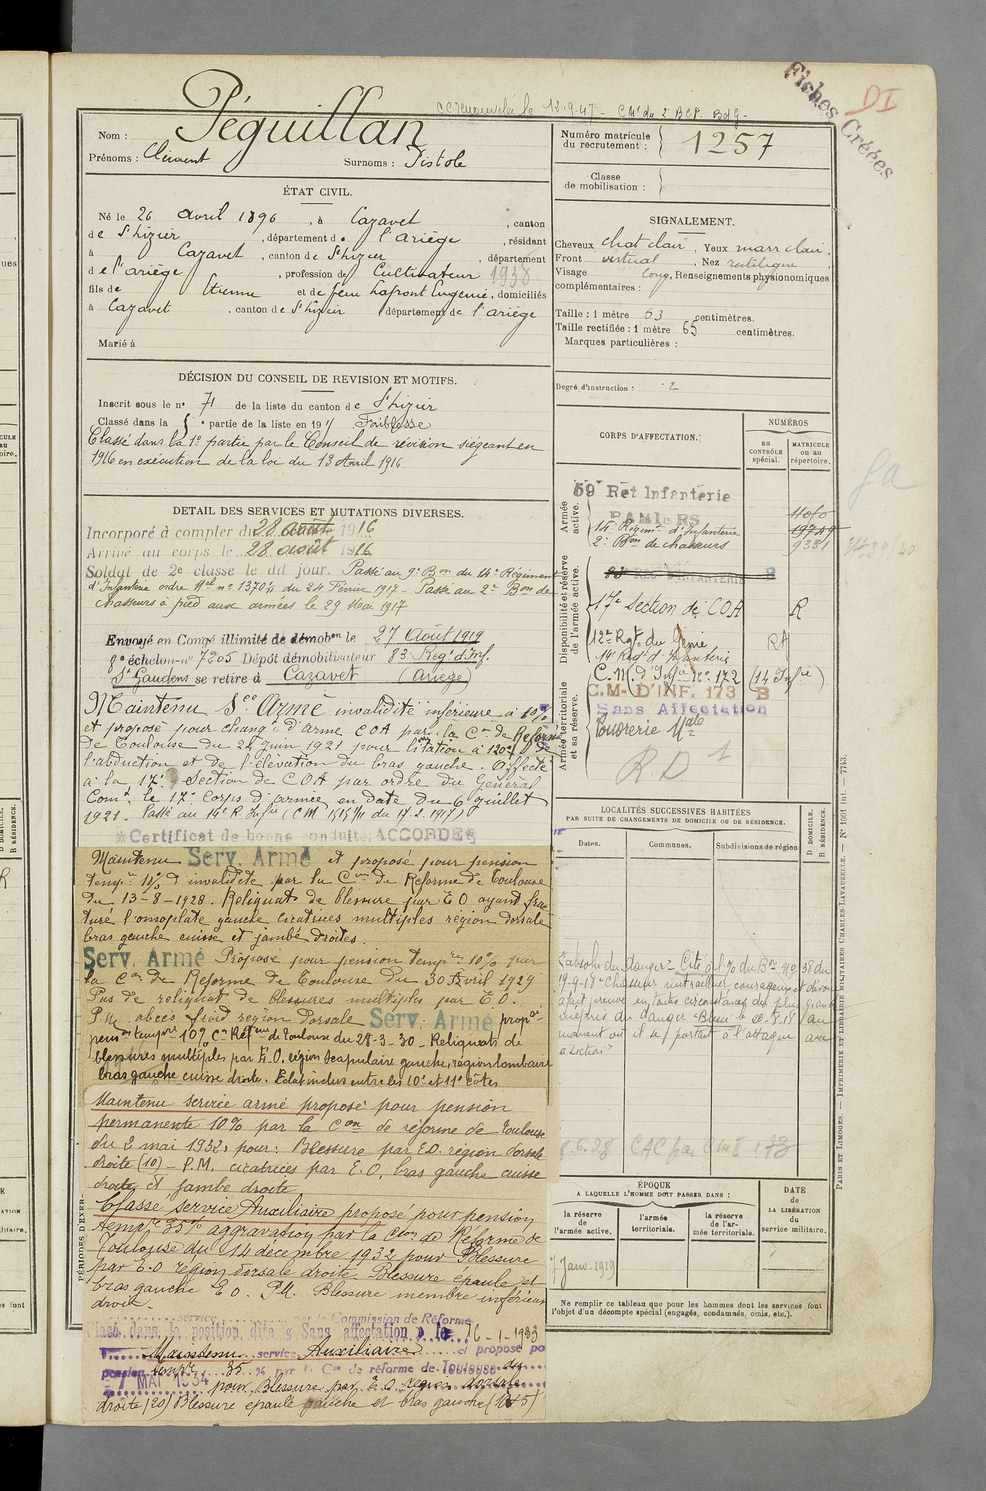 Fiches Créées
DI
12-9-47
Péguillan
Nom :
Prénoms : Clément Surnoms : Pistole
Numéro matricule du recrutement : 1257
Classe de mobilisation :
ÉTAT CIVIL.
Né le 26 avril 1896, à Cazavet, canton
de St Lizier, département de l'ariège, résidant
à Cazavet, canton de St Lizier, département
de l'ariège, profession de Cultivateur 1938
fils de Etienne et de feue Lafront Eugénie, domiciliés
à Cazavet, canton de St Lizier département de l'ariège
Marié à
SIGNALEMENT.
Cheveux chat clair, Yeux marr clair,
Front vertical, Nez rectiligne,
Visage long, Renseignements physionomiques
complémentaires :
Taille : 1 mètre 63 centimètres.
Taille rectifiée : 1 mètre 65 centimètres.
Marques particulières :
Degré d'instruction : 2
DÉCISION DU CONSEIL DE REVISION ET MOTIFS.
Inscrit sous le no 71 de la liste du canton de St Lizier
Classé dans la partie de la liste en 191 Faiblesse
Classé dans la 1e partie par le Conseil de révision siégeant en
1916 en exécution de la loi du 13 Avril 1916
DÉTAIL DES SERVICES ET MUTATIONS DIVERSES.
Incorporé à compter du 28 août 1916
Arrivé au corps le 28 août 1916
Soldat de 2e classe le dit jour. Passé au 9e Bon du 14e Régiment
d'Infanterie ordre Mel no 1370/1 du 24 Février 1917 - Passé au 2e Bon de
chasseurs à pied aux armées le 29 Mai 1917
Envoyé en Congé illimité de démobon le 27 Août 1919
8e échelon no 7205 Dépôt démobilisateur 83e Regt d'Inf.
St Gaudens se retire à Cazavet (Ariège)
Maintenu Sce Armé invalidité inférieure à 10%
et proposé pour changt d'arme COA par la Con de Réforme
de Toulouse du 24 juin 1921 pour litation à 120° de
l'abduction et de l'élévation du bras gauche. Affecté
à la 17e Section de COA par ordre du Général
Comt le 17e Corps d'armée en date du 6 juillet
1921. Passé au 14e R. Infie
Certificat de bonne conduite ACCORDÉ
Maintenu Serv. Armé et proposé pour pension
tempre 10% d'invalidité par la Con de Réforme de Toulouse
du 13-8-1928. Reliquats de blessure par E O ayant frac
turé l'omoplate gauche cicatrices multiples région dorsale
bras gauche cuisse et jambe droites.
Serv. Armé Proposé pour pension tempre 10% par
la Con de Réforme de Toulouse du 30 Avril 1929
Pas de reliquat de blessures multiples par E.O.
P.M. abcès froid région dorsale Serv. Armé propo
pens tempre 10% Con Réfme de Toulouse du 28-3-30 - Reliquats de
blessures multiples par E.O. région scapulaire gauche, région lombaire
bras gauche cuisse droite. Eclat inclus entre les 10e et 11e côtes
Maintenu service armé proposé pour pension
permanente 10% par la Con de réforme de Toulouse
du 2 mai 1932, pour : Blessure par E.O. région dorsale
droite (10) - P.M. cicatrices par E.O. bras gauche cuisse
droite et jambe droite
Classé service Auxiliaire proposé pour pension
tempre 35% aggravation par la Con de Réforme de
Toulouse du 14 décembre 1932 pour Blessure
par E.O région dorsale droite. Blessure épaule et
bras gauche E O. P.M. Blessure membre inférieur
droit.
service la Commission de Réforme
Placé dans la position dite « Sans affectation » le 16-1-1933
Maintenu service Auxiliaire et proposé po
pension tempre 35 % par la Con de réforme de Toulouse du
7 MAI 1934 pour Blessure par E O région dorsale
droite (20) Blessure épaule gauche et bras gauche (10+5)
PÉRIODES D'EXER-
CORPS D'AFFECTATION.
NUMÉROS
au CONTRÔLE spécial.
MATRICULE ou au répertoire.
Armée active.
59e Rét Infanterie
PAMIERS
14e Régimt d'Infanterie
2e Bon de chasseurs 9331
Disponibilité et réserve de l'armée active.
83e REG D'INFANTERIE
17e Section de COA R
12e Rgt du Génie
14e Regt d'Infanterie
C.M. d'Infie No 172 (14 Infie)
Armée territoriale et sa réserve.
C.M. D'INF. 173 B
Sans Affectation
Poudrerie Nale
R.D
LOCALITÉS SUCCESSIVES HABITÉES
PAR SUITE DE CHANGEMENTS DE DOMICILE OU DE RÉSIDENCE.
Dates. Communes. Subdivisions de région
D. DOMICILE.
R. RÉSIDENCE.
absolu du danger" Cité à l'o/ du Bon no 58 du
19-9-18 "Chasseur mitrailleur, courageux et dévoué
a fait preuve en toutes circonstances du plus grand
mépris du danger. Blessé le 20-8-18 au
moment où il se portait à l'attaque avec
sa section"
ÉPOQUE
A LAQUELLE L'HOMME DOIT PASSER DANS :
la réserve de l'armée active.
l'armée territoriale.
la réserve de l'armée territoriale.
DATE de LA LIBÉRATION du service militaire.
7 Janv-1919
Ne remplir ce tableau que pour les hommes dont les services font
l'objet d'un décompte spécial (engagés, condamnés, omis, etc.).
PARIS ET LIMOGES. — IMPRIMERIE ET LIBRAIRIE MILITAIRES CHARLES-LAVAUZELLE. — No 1001 int. — 7743.